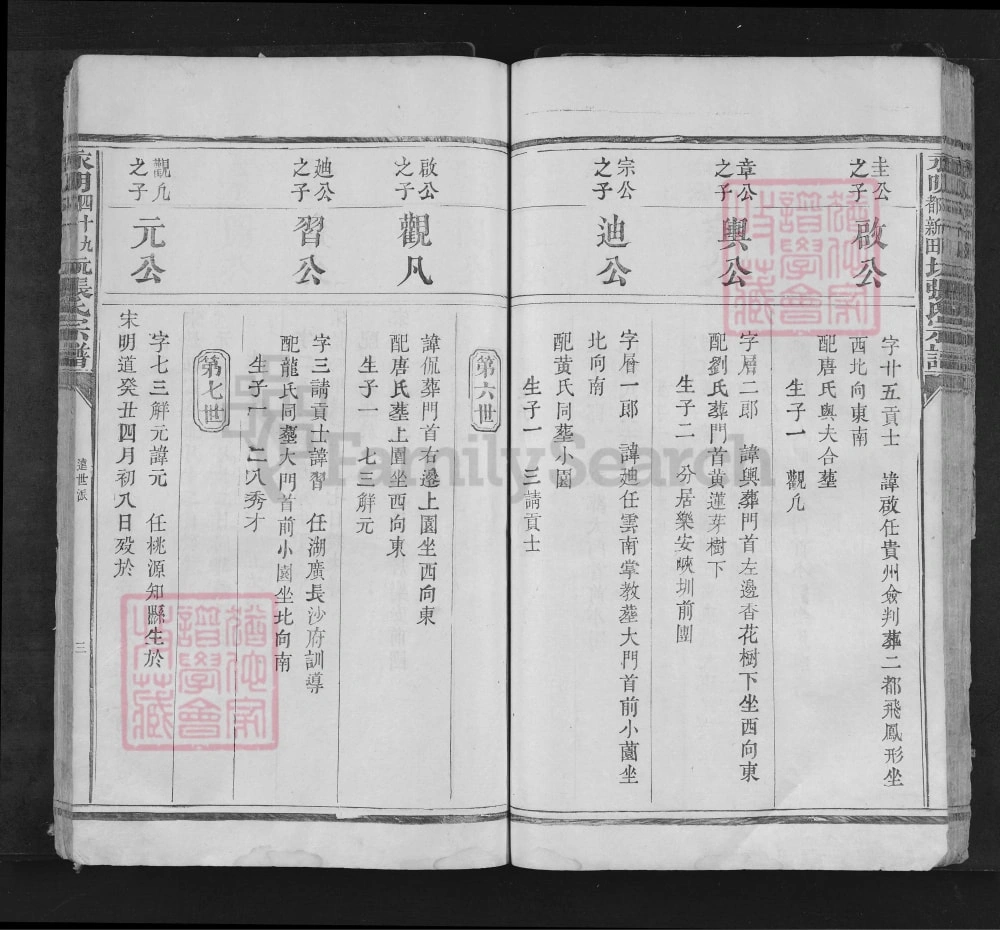 永明都新田
張氏宗譜
圭公之子
啟公
字廿五貢士 諱啟任貴州僉判葬二都飛鳳形坐
西北向東南
配唐氏與夫合塟
生子一 觀凡
章公之子
興公
字層二郎 諱興葬門首左邊杳花樹下坐西向東
配劉氏葬門首黄蓮芽樹下
生子二 分居樂安峽圳前團
宗公之子
迪公
字層一郎 諱廸任雲南掌教塟大門首前小薗坐
北向南
配黃氏同塟小園
生子一 三請貢士
第六世
啟公之子
觀凡
諱侃葬門首右邊上園坐西向東
配唐氏塟上園坐西向東
生子一 七三解元
廸公之子
習公
字三請貢士諱習 任湖廣長沙府訓導
配龍氏同塟大門首前小園坐北向南
生子一 二八秀才
第七世
觀凡之子
元公
字七三解元諱元 任桃源知縣生於
宋明道癸丑四月初八日歿於
永明四十九
張氏宗譜
遠世派
三
FamilySearch